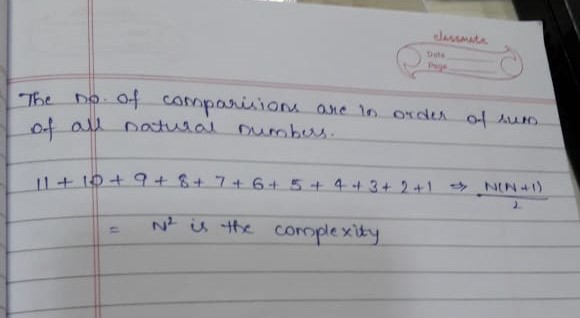 classmate
Date
Page
The no. of comparisions are in order of sum
of all natural numbers.
11 + 10 + 9 + 8 + 7 + 6 + 5 + 4 + 3 + 2 + 1 ⇒ N(N+1)
2
= N² is the complexity